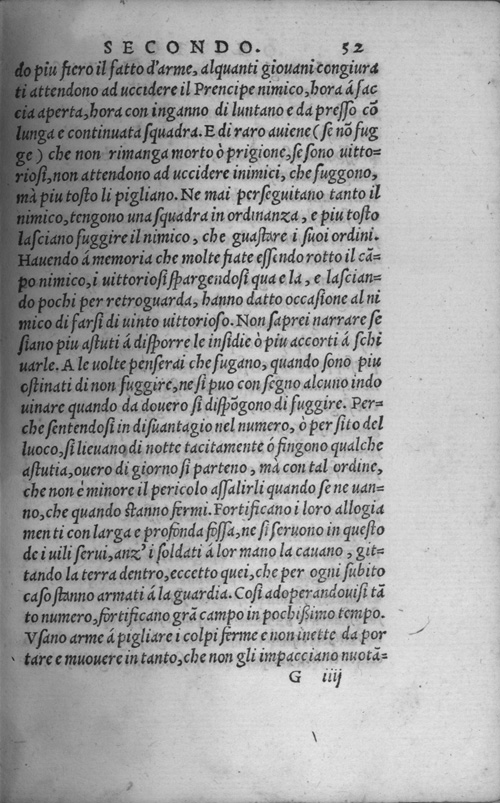 SECONDO. 52
do piu fiero il fatto d'arme, alquanti giouani congiura
ti attendono ad uccidere il Prencipe nimico, hora á fac
cia aperta, hora con inganno di luntano e da presso cō
lunga e continuata squadra. E di raro auiene (se nō fug
ge) che non rimanga morto ò prigione, se sono uitto=
riosi, non attendono ad uccidere inimici, che fuggono,
mà piu tosto li pigliano. Ne mai perseguitano tanto il
nimico, tengono una squadra in ordinanza, e piu tosto
lasciano fuggire il nimico, che guastare i suoi ordini.
Hauendo á memoria che molte fiate essendo rotto il cā=
po nimico, i uittoriosi spargendosi qua e la, e lascian=
do pochi per retroguarda, hanno datto occasione al ni
mico di farsi di uinto uittorioso. Non saprei narrare se
siano piu astuti á disporre le insidie ò piu accorti á schi
uarle. A le uolte penserai che fugano, quando sono piu
ostinati di non fuggire, ne si puo con segno alcuno indo
uinare quando da douero si dispōgono di fuggire. Per=
che sentendosi in disuantagio nel numero, ò per sito del
luoco, si lieuano di notte tacitamente ó fingono qualche
astutia, ouero di giorno si parteno, mà con tal ordine,
che non è minore il pericolo assalirli quando se ne uan=
no, che quando stanno fermi. Fortificano i loro allogia
menti con larga e profonda fossa, ne si seruono in questo
de i uili serui, anz' i soldati á lor mano la cauano, git=
tando la terra dentro, eccetto quei, che per ogni subito
caso stanno armati á la guardia. Cosi adoperandouisi tā
to numero, fortificano grā campo in pochissimo tempo.
Vsano arme á pigliare i colpi ferme e non inette da por
tare e muouere in tanto, che non gli impacciano nuotā=
G iiij